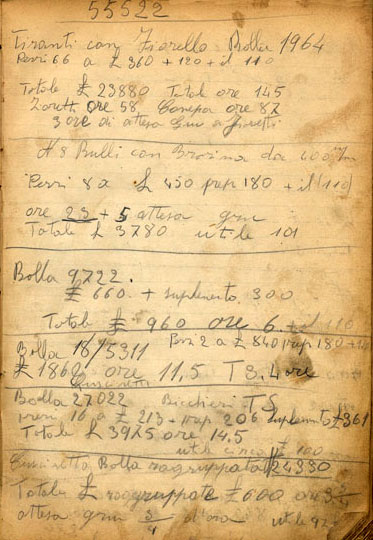 55522
Tiranti con Fiorello Bolla 1964
Pezzi 66 a £ 360 + 120 + il 110
Totale £ 23880 Total ore 145
Zorett ore 58 Canepa ore 87
3 ore di attesa Gru a
N 8 Bulli con Brozina da 400
Pezzi 8 a £ 450 prep 180 + il (110)
ore 23 + 5 attesa gru
Totale £ 3780 utile 101
Bolla 9722.
£ 660. + suplemento 300
Totale £ 960 ore 6. + il 110
Bolla 18/5311 Pezzi 2 a £ 840 prep 180 +
£ 1860 ore 11,5 T 3.4 ore
Bolla 27022 Bicchieri T 5
pezzi 16 a £ 213 + prep 206 suplemento £ 361
Totale £ 3975 ore 14.5
utile circa £ 100
Bolla raggruppata 24330
Totale £ raggruppate £ 600 ore 3 3/4
attesa gru 3/4 d'ora utile